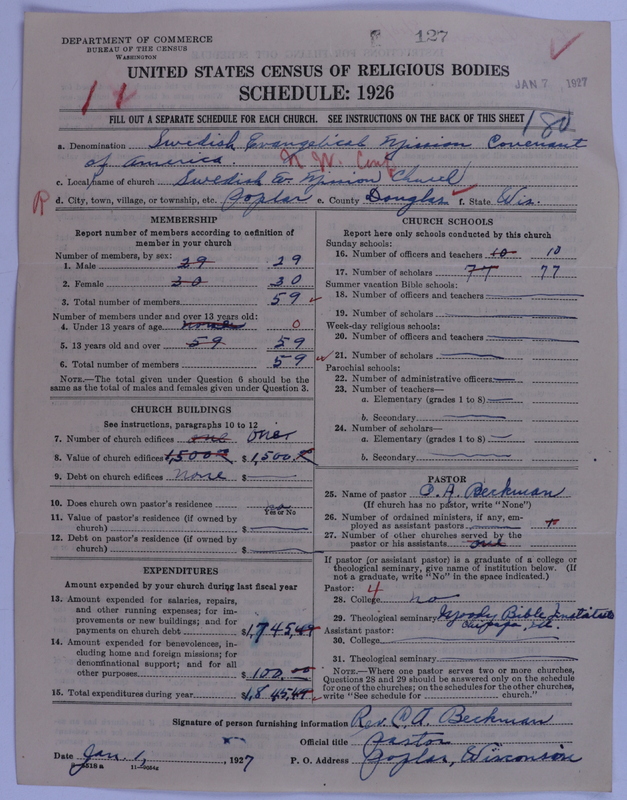 DEPARTMENT OF COMMERCE
BUREAU OF THE CENSUS
WASHINGTON
127
JAN 7 1927
UNITED STATES CENSUS OF RELIGIOUS BODIES
SCHEDULE: 1926
FILL OUT A SEPARATE SCHEDULE FOR EACH CHURCH. SEE INSTRUCTIONS ON THE BACK OF THIS SHEET
180
a. Denomination Swedish Evangelical Mission Covenant
of America. N.W. Conf
c. Local name of church Swedish Ev. Mission Church
d. City, town, village, or township, etc. Poplar e. County Douglas f. State Wis.
MEMBERSHIP
Report number of members according to definition of
member in your church
Number of members, by sex:
1. Male 29 29
2. Female 30 30
3. Total number of members 59
Number of members under and over 13 years old:
4. Under 13 years of age none 0
5. 13 years old and over 59 59
6. Total number of members 59
NOTE.—The total given under Question 6 should be the
same as the total of males and females given under Question 3.
CHURCH BUILDINGS
See instructions, paragraphs 10 to 12
7. Number of church edifices one one
8. Value of church edifices 1,500 $ 1,500
9. Debt on church edifices none $
10. Does church own pastor's residence no
Yes or No
11. Value of pastor's residence (if owned by
church) $
12. Debt on pastor's residence (if owned by
church) $
EXPENDITURES
Amount expended by your church during last fiscal year
13. Amount expended for salaries, repairs,
and other running expenses; for im-
provements or new building; and for
payments on church debt $1,745.49
14. Amount expended for benevolences, in-
cluding home and foreign missions; for
denominational support; and for all
other purposes $100.00
15. Total expenditures during year $1,845.49
CHURCH SCHOOLS
Report here only schools conducted by this church
Sunday schools:
16. Number of officers and teachers 10 10
17. Number of scholars 77 77
Summer vacation Bible schools:
18. Number of officers and teachers
19. Number of scholars
Week-day religious schools:
20. Number of officers and teachers
21. Number of scholars
Parochial schools:
22. Number of administrative officers
23. Number of teachers—
a. Elementary (grades 1 to 8)
b. Secondary
24. Number of scholars—
a. Elementary (grades 1 to 8)
b. Secondary
PASTOR
25. Name of pastor C. A. Beckman
(If church has no pastor, write "None")
26. Number of ordained ministers, if any, em-
ployed as assistant pastors
27. Number of other churches served by the
pastor or his assistants one
If pastor (or assistant pastor) is a graduate of a college or
theological seminary, give name of institution below. (If
not a graduate, write "No" in the space indicated.)
Pastor: 4
28. College no
29. Theological seminary Moody Bible Institute
Chicago, Ill.
Assistant pastor:
30. College
31. Theological seminary
NOTE.—Where one pastor serves two or more churches,
Questions 28 and 29 should be answered only on the schedule
for one of the churches; on the schedules for the other churches,
write "See schedule for church."
Signature of person furnishing information Rev. C. A. Beckman
Official title Pastor
Date Jan. 1, 1927 P. O. Address Poplar, Wisconsin